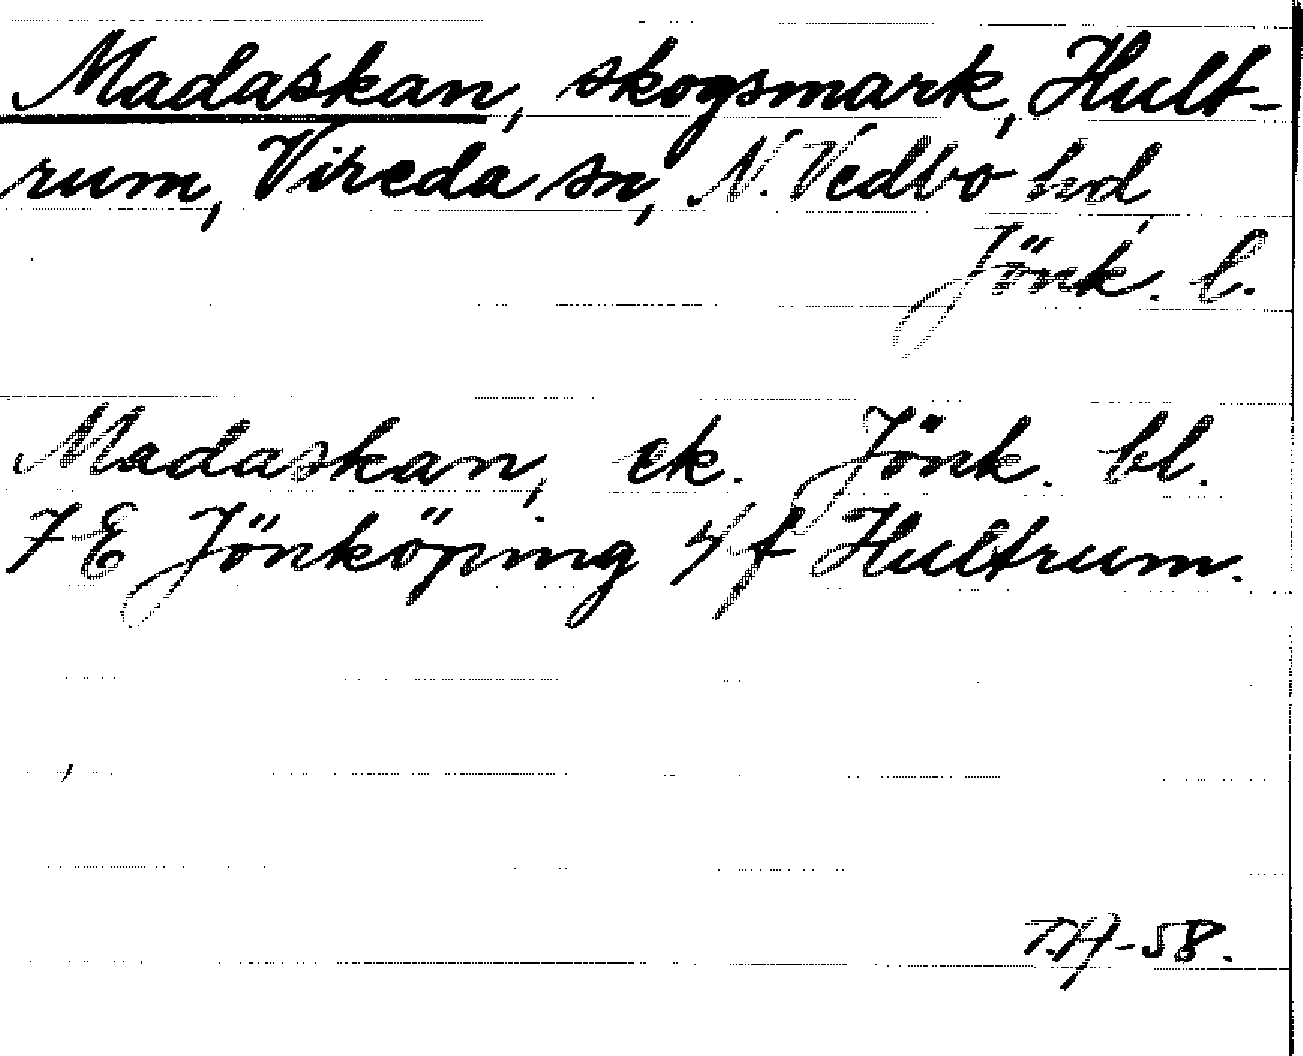 Madaskan, skogsmark, Hult-
rum, Vireda sn, N. Vedbo hd,
Jönk. l.
Madaskan, ek. Jönk. bl.
7 E Jönköping 4 f Hultrum.
T.H-58.